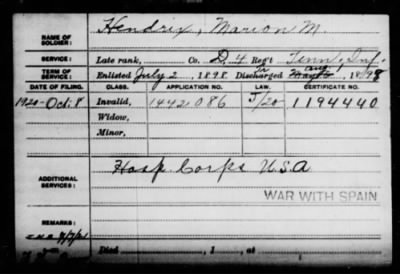 NAME OF SOLDIER: Hendrix, Marion M.
SERVICE: Late rank, Co. D. 4 Regt Tenn. Inf.
TERM OF SERVICE: Enlisted July 2, 1898 Discharged Aug 1, 1898
DATE OF FILING. CLASS. APPLICATION NO. LAW. CERTIFICATE NO.
1920-Oct. 8 Invalid, 1442086 J/20 1194440
Widow,
Minor,
ADDITIONAL SERVICES: Hosp. Corps U.S.A
WAR WITH SPAIN
REMARKS:
Died , 1 , at